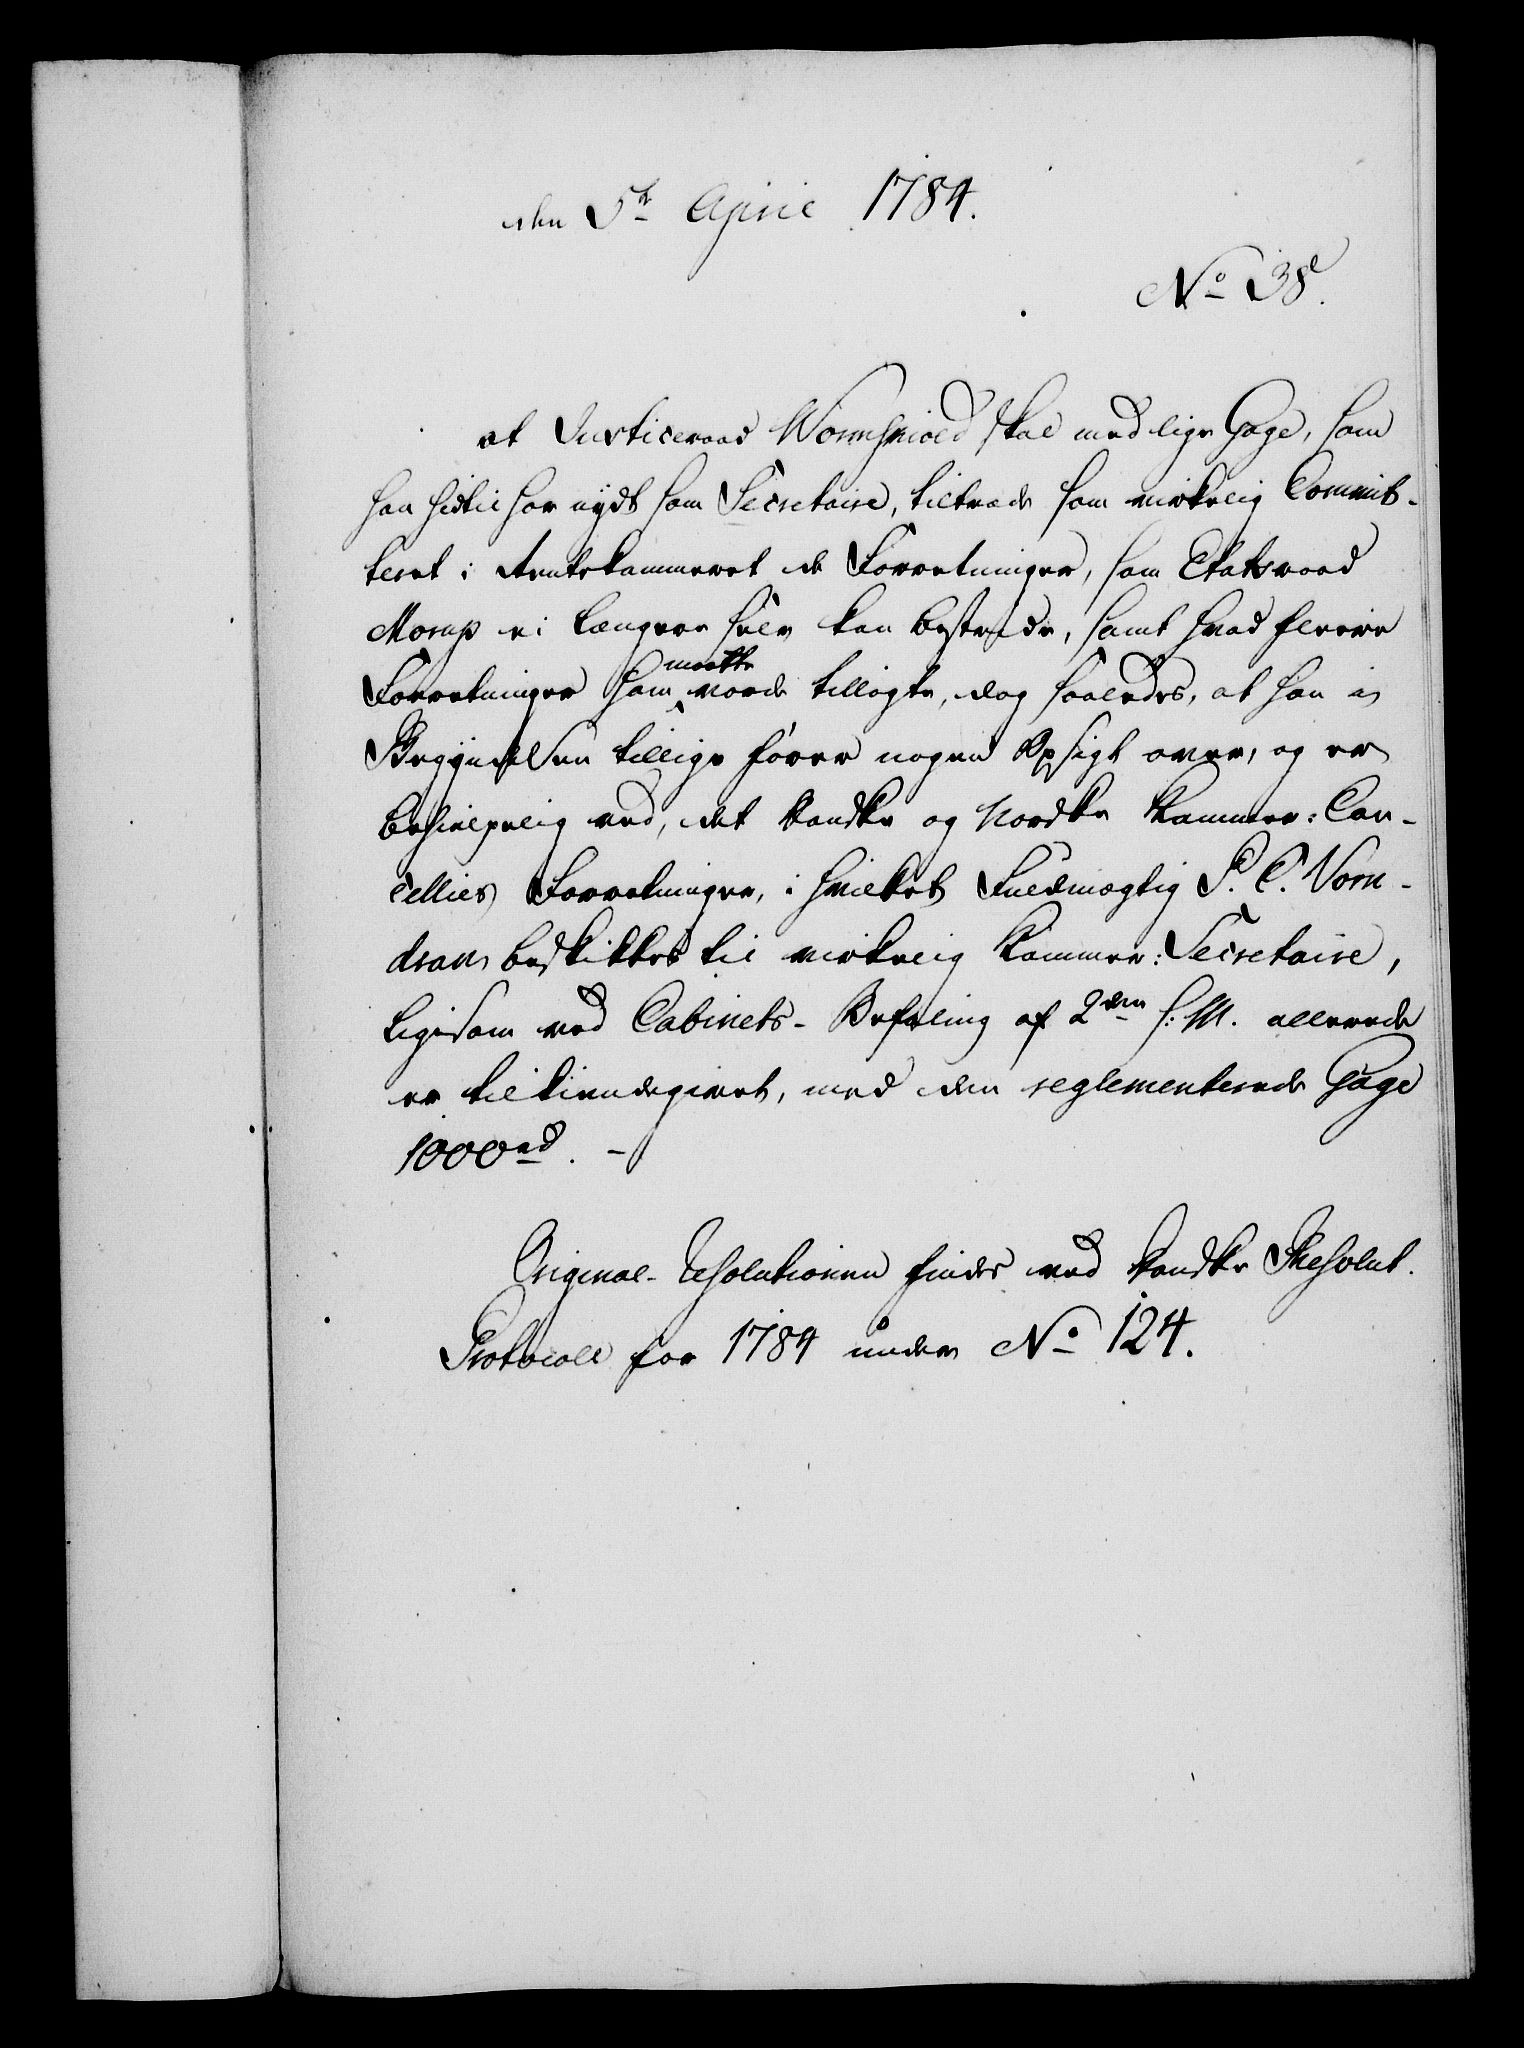 den 5te April 1784.
No 38.
at Justiceraad Wormskiold skal med lige Gage, som
han hidtil har nydt som Secretaire, tiltræde som virkelig Commit-
teret i Rentekammeret de Forretninger, som Etatsraad
Morup ei længere selv kan bestride, samt hvad fleere
Forretninger ham maatte vorde tillagte, dog saaledes, at han i
Begyndelsen tillige fører nogen Opsigt over, og er
behielpelig ved, det danske og Norske Kammer-Can-
cellies Forretninger, i hvilket Fuldmægtig P. C. Vorn-
dran beskikkes til virkelig Kammer-Secretaire,
ligesom ved Cabinets-Befaling af 2den h: M. allerede
er tilkiendegivet, med den reglementerede Gage
1000 rd. -
Original-Resolutionen findes ved danske Resolut.
Protocoll for 1784 under No 124.